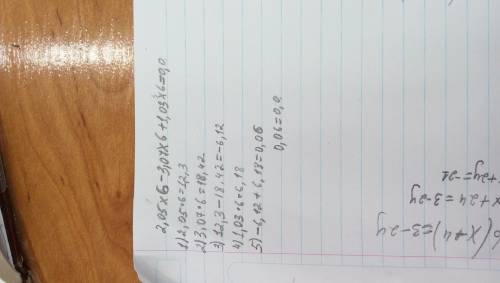 2,05×6-3,07×6+1,03×6=0,0
1) 2,05·6=12,3
2) 3,07·6=18,42
3) 12,3-18.42=-6,12
4) 1,03·6=6,18
5) -6,12+6,18=0,06
0,06=0,0
6(x+4)=3-2y
x+24=3-2y
+2y=-21